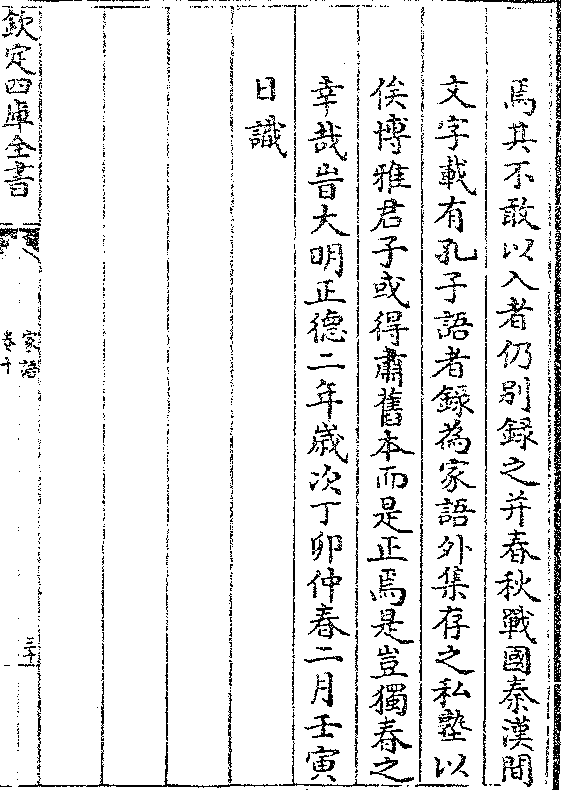 焉其不敢以入者仍别録之并春秋戰國秦漢間
文字載有孔子語者録為家語外集存之私塾以
俟博雅君子或得肅舊本而是正焉是豈獨春之
幸哉旹大明正德二年歲次丁卯仲春二月壬寅
日識
欽定四庫全書
家語
卷十